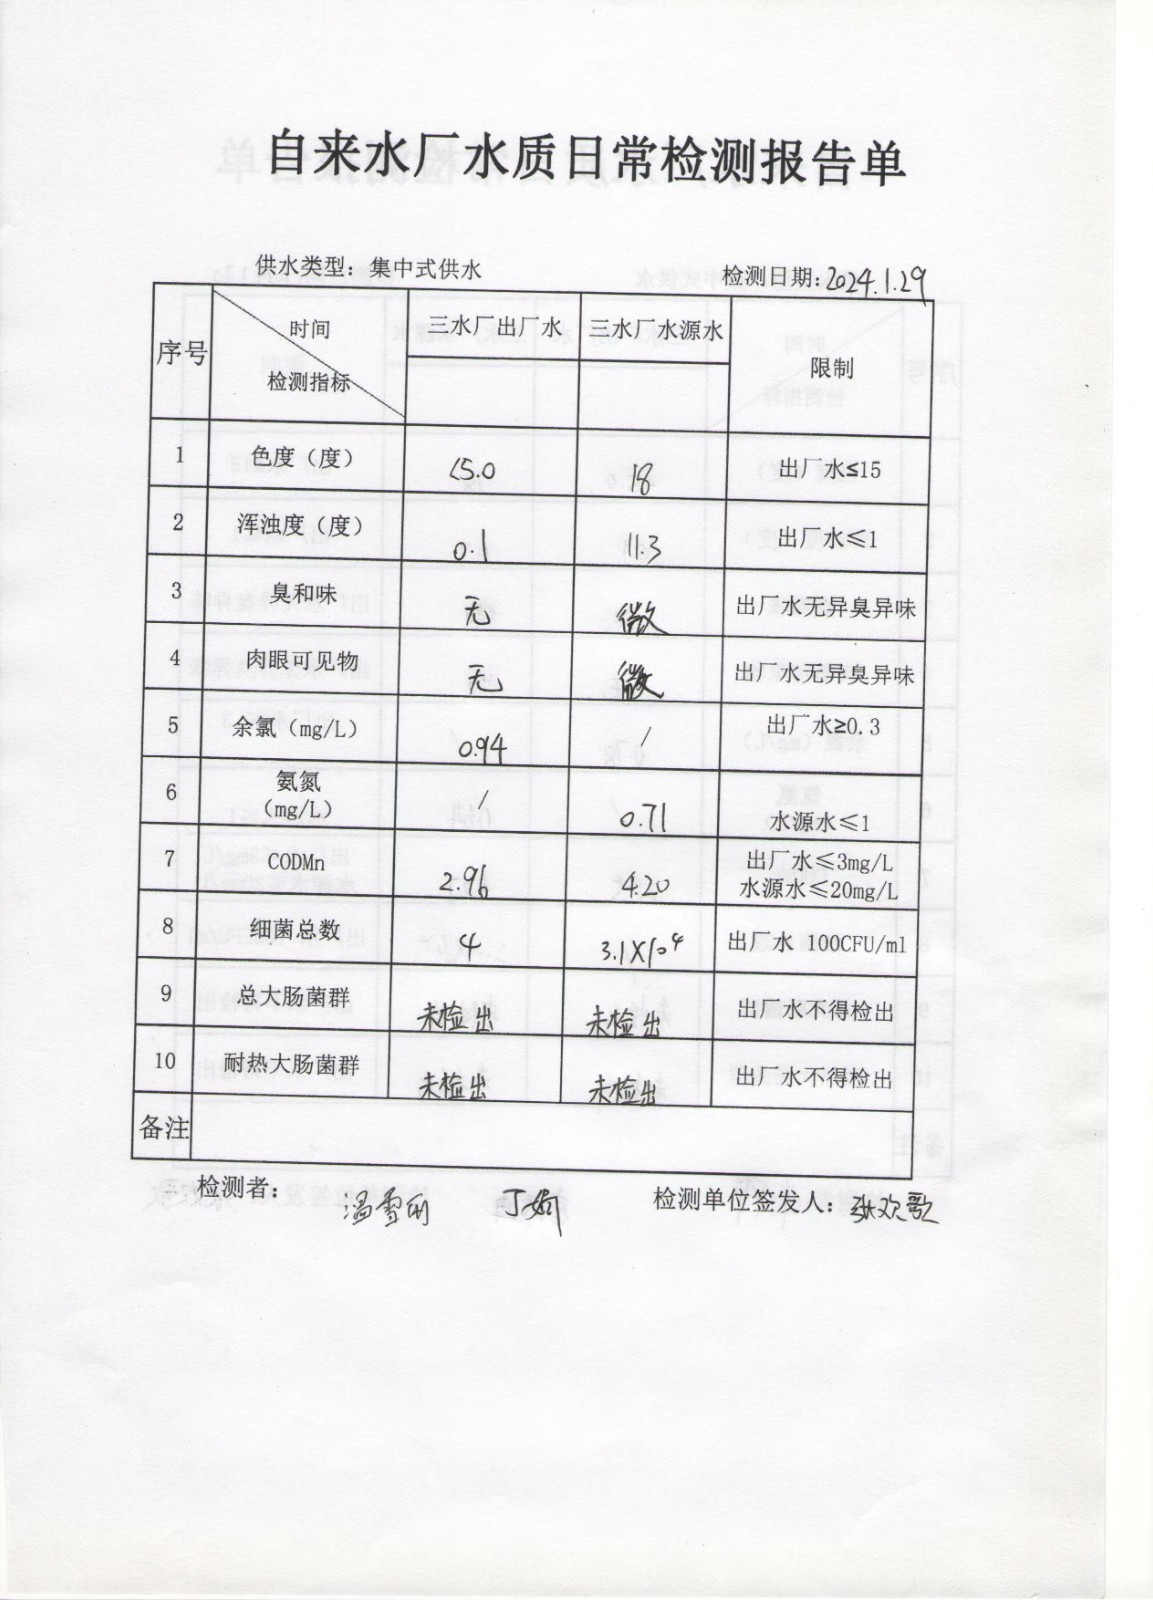 自来水厂水质日常检测报告单
供水类型：集中式供水 检测日期：2024.1.29
序号 时间 检测指标 三水厂出厂水 三水厂水源水 限制
1 色度（度） <5.0 18 出厂水≤15
2 浑浊度（度） 0.1 11.3 出厂水≤1
3 臭和味 无 微 出厂水无异臭异味
4 肉眼可见物 无 微 出厂水无异臭异味
5 余氯（mg/L） 0.94 / 出厂水≥0.3
6 氨氮（mg/L） / 0.71 水源水≤1
7 CODMn 2.96 4.20 出厂水≤3mg/L 水源水≤20mg/L
8 细菌总数 4 3.1×10⁴ 出厂水 100CFU/ml
9 总大肠菌群 未检出 未检出 出厂水不得检出
10 耐热大肠菌群 未检出 未检出 出厂水不得检出
备注
检测者：温雪 丁 检测单位签发人：张欢歌